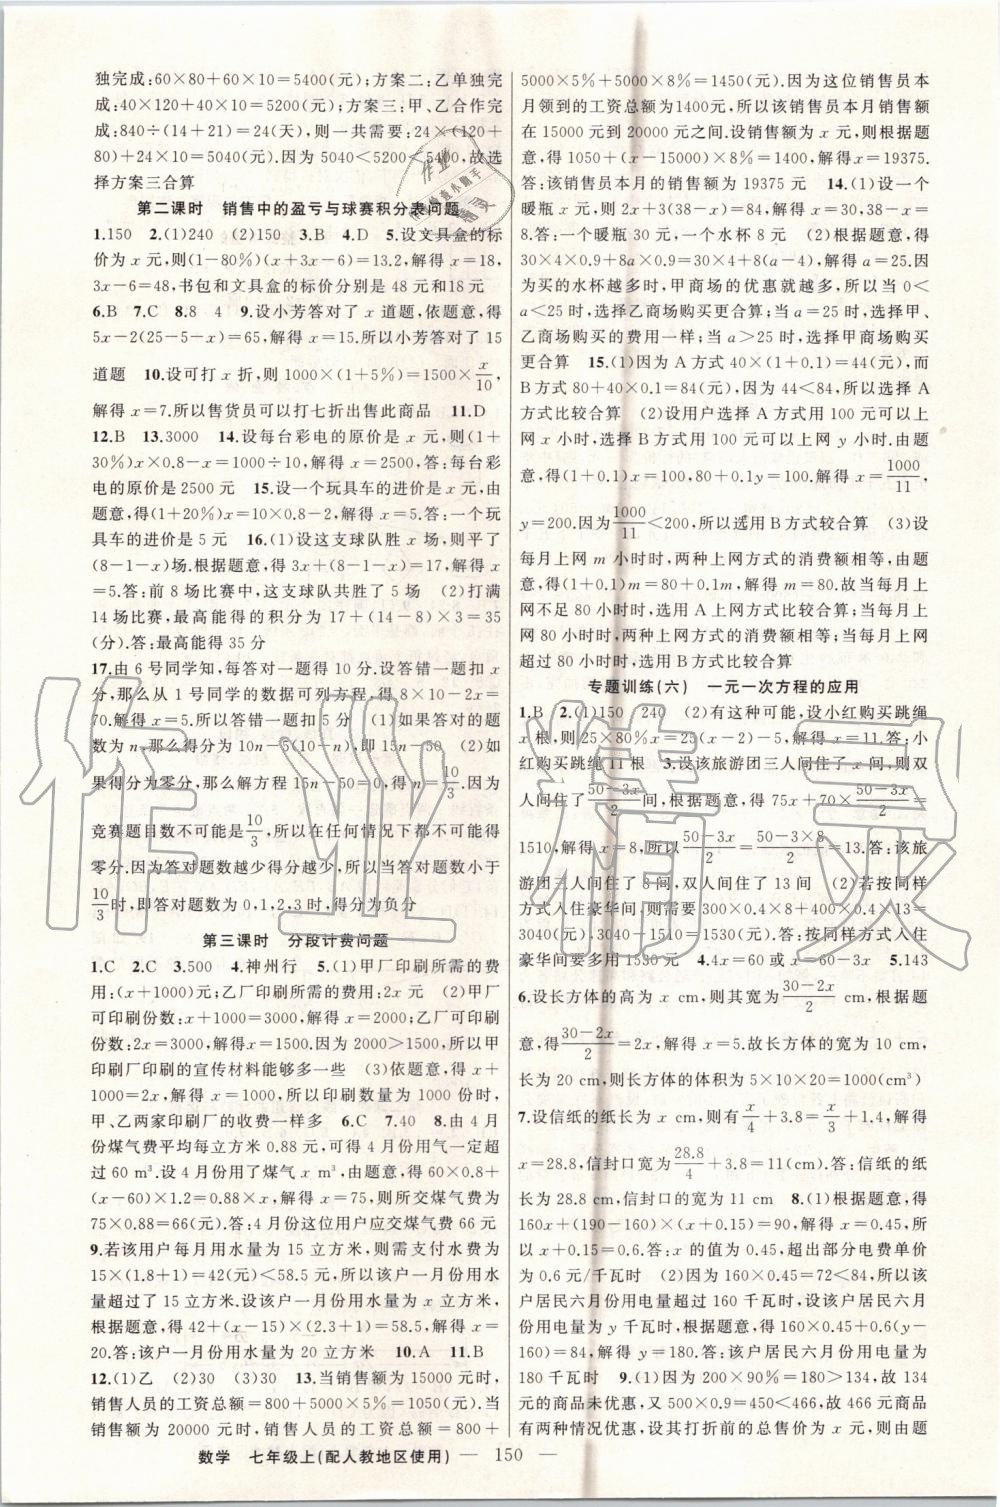 独完成:60×80+60×10=5400(元);方案二:乙单独完
成:40×120+40×10=5200(元);方案三:甲、乙合作完
成:840÷(14+21)=24(天),则一共需要:24×(120+
80)+24×10=5040(元).因为 5040<5200<5400,故选
择方案三合算
第二课时 销售中的盈亏与球赛积分表问题
1.150 2.(1)240 (2)150 3.B 4.D 5.设文具盒的标
价为 x 元,则(1-80%)(x+3x-6)=13.2,解得 x=18,
3x-6=48,书包和文具盒的标价分别是 48 元和18 元
6.B 7.C 8.8 4 9.设小芳答对了 x 道题,依题意,得
5x-2(25-5-x)=65,解得 x=15.所以小芳答对了 15
道题 10.设可打 x 折,则 1000×(1+5%)=1500×x/10,
解得 x=7.所以售货员可以打七折出售此商品 11.D
12.B 13.3000 14.设每台彩电的原价是 x 元,则(1+
30%)x×0.8-x=1000÷10,解得 x=2500,答:每台彩
电的原价是 2500 元 15.设一个玩具车的进价是 x 元,由
题意,得(1+20%)x=10×0.8-2,解得 x=5.答:一个玩
具车的进价是 5 元 16.(1)设这支球队胜 x 场,则平了
(8-1-x)场.根据题意,得 3x+(8-1-x)=17,解得 x
=5.答:前 8 场比赛中,这支球队共胜了 5 场 (2)打满
14 场比赛,最高能得的积分为 17+(14-8)×3=35
(分).答:最高能得 35 分
17.由 6 号同学知,每答对一题得 10 分.设答错一题扣 x
分,那么从 1 号同学的数据可列方程,得 8×10-2x=
70.解得 x=5.所以答错一题扣 5 分 (1)如果答对的题
数为 n,那么得分为 10n-5(10-n),即 15n-50 (2)如
果得分为零分,那么解方程 15n-50=0,得 n=10/3.因为
竞赛题目数不可能是10/3,所以在任何情况下都不可能得
零分.因为答对题数越少得分越少,所以当答对题数小于
10/3时,即答对题数为 0,1,2,3 时,得分为负分
第三课时 分段计费问题
1.C 2.C 3.500 4.神州行 5.(1)甲厂印刷所需的费
用:(x+1000)元;乙厂印刷所需的费用:2x 元 (2)甲厂
可印刷份数:x+1000=3000,解得 x=2000;乙厂可印刷
份数:2x=3000,解得 x=1500.因为 2000>1500,所以甲
印刷厂印刷的宣传材料能够多一些 (3)依题意,得 x+
1000=2x,解得 x=1000,所以印刷数量为 1000 份时,
甲、乙两家印刷厂的收费一样多 6.C 7.40 8.由 4 月
份煤气费平均每立方米 0.88 元,可得 4 月份用气一定超
过 60 m³.设 4 月份用了煤气 x m³,由题意,得 60×0.8+
(x-60)×1.2=0.88×x,解得 x=75,则所交煤气费为
75×0.88=66(元).答:4 月份这位用户应交煤气费 66 元
9.若该用户每月用水量为 15 立方米,则需支付水费为
15×(1.8+1)=42(元)<58.5 元,所以该户一月份用水
量超过了 15 立方米.设该户一月份用水量为 x 立方米,
根据题意,得 42+(x-15)×(2.3+1)=58.5,解得 x=
20.答:该户一月份用水量为 20 立方米 10.A 11.B
12.(1)乙 (2)30 (3)30 13.当销售额为 15000 元时,
销售人员的工资总额=800+5000×5%=1050(元).当
销售额为 20000 元时,销售人员的工资总额=800+
5000×5%+5000×8%=1450(元).因为这位销售员本
月领到的工资总额为1400元,所以该销售员本月销售额
在 15000 元到 20000 元之间.设销售额为 x 元,则根据题
意,得 1050+(x-15000)×8%=1400,解得 x=19375.
答:该销售员本月的销售额为 19375 元 14.(1)设一个
暖瓶 x 元,则 2x+3(38-x)=84,解得 x=30,38-x=
8.答:一个暖瓶 30 元,一个水杯 8 元 (2)根据题意,得
30×4×0.9+8a×0.9=30×4+8(a-4),解得 a=25.因
为买的水杯越多时,甲商场的优惠就越多,所以当 0<
a<25 时,选择乙商场购买更合算;当 a=25 时,选择甲、
乙商场购买的费用一样;当 a>25 时,选择甲商场购买
更合算 15.(1)因为 A 方式 40×(1+0.1)=44(元),而
B方式 80+40×0.1=84(元),因为 44<84,所以选择 A
方式比较合算 (2)设用户选择 A 方式用 100 元可以上
网 x 小时,选择 B 方式用 100 元可以上网 y 小时.由题
意,得(1+0.1)x=100,80+0.1y=100.解得 x=1000/11,
y=200.因为1000/11<200,所以选用 B 方式较合算 (3)设
每月上网 m 小时时,两种上网方式的消费额相等,由题
意,得(1+0.1)m=80+0.1m,解得 m=80.故当每月上
网不足 80 小时时,选用 A 上网方式比较合算;当每月上
网 80 小时时,两种上网方式的消费额相等;当每月上网
超过 80 小时时,选用 B 方式比较合算
专题训练(六) 一元一次方程的应用
1.B 2.(1)150 240 (2)有这种可能,设小红购买跳绳
x 根,则 25×80%x=25(x-2)-5,解得 x=11.答:小
红购买跳绳 11 根 3.设该旅游团三人间住了 x 间,则双
人间住了(50-3x)/2间,根据题意,得 75x+70×(50-3x)/2=
1510,解得 x=8,所以(50-3x)/2=(50-3×8)/2=13.答:该旅
游团三人间住了 8 间,双人间住了 13 间 (2)若按同样
方式入住豪华间,则需要 300×0.4×8+300×0.4×13=
3040(元),3040-1510=1530(元).答:按同样方式入住
豪华间要多用 1530 元 4.4x=60 或 x=60-3x 5.143
6.设长方体的高为 x cm,则其宽为(30-2x)/2 cm,根据题
意,得(30-2x)/2=2x,解得 x=5.故长方体的宽为 10 cm,
长为 20 cm,则长方体的体积为 5×10×20=1000(cm³)
7.设信纸的纸长为 x cm,则有x/4+3.8=x/3+1.4,解得
x=28.8,信封口宽为28.8/4+3.8=11(cm).答:信纸的纸
长为 28.8 cm,信封口的宽为 11 cm 8.(1)根据题意,得
160x+(190-160)×(x+0.15)=90,解得 x=0.45,所
以 x+0.15=0.6.答:x 的值为 0.45,超出部分电费单价
为 0.6 元/千瓦时 (2)因为 160×0.45=72<84,所以该
户居民六月份用电量超过 160 千瓦时,设该户居民六月
份用电量为 y 千瓦时,根据题意,得 160×0.45+0.6(y
-160)=84,解得 y=180.答:该户居民六月份用电量为
180 千瓦时 9.(1)因为 200×90%=180>134,故 134
元的商品未优惠,又 500×0.9=450<466,故 466 元商品
有两种情况优惠,设其打折前的总售价为 x 元,则根据
数学 七年级上(配人教地区使用) — 150 —
作业精灵